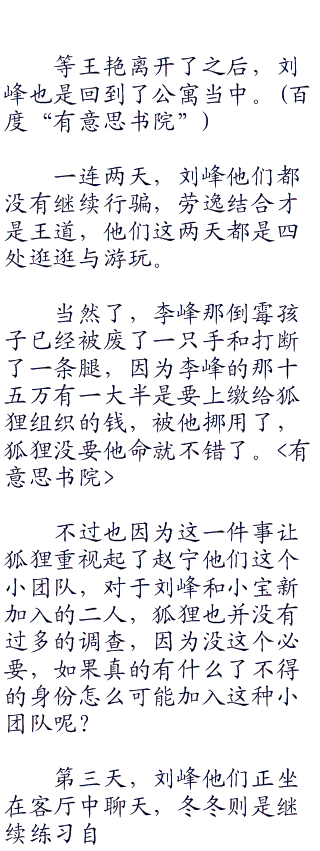 等王艳离开了之后，刘
峰也是回到了公寓当中。(百
度“有意思书院”)
一连两天，刘峰他们都
没有继续行骗，劳逸结合才
是王道，他们这两天都是四
处逛逛与游玩。
当然了，李峰那倒霉孩
子已经被废了一只手和打断
了一条腿，因为李峰的那十
五万有一大半是要上缴给狐
狸组织的钱，被他挪用了，
狐狸没要他命就不错了。<有
意思书院>
不过也因为这一件事让
狐狸重视起了赵宁他们这个
小团队，对于刘峰和小宝新
加入的二人，狐狸也并没有
过多的调查，因为没这个必
要，如果真的有什么了不得
的身份怎么可能加入这种小
团队呢？
第三天，刘峰他们正坐
在客厅中聊天，冬冬则是继
续练习自